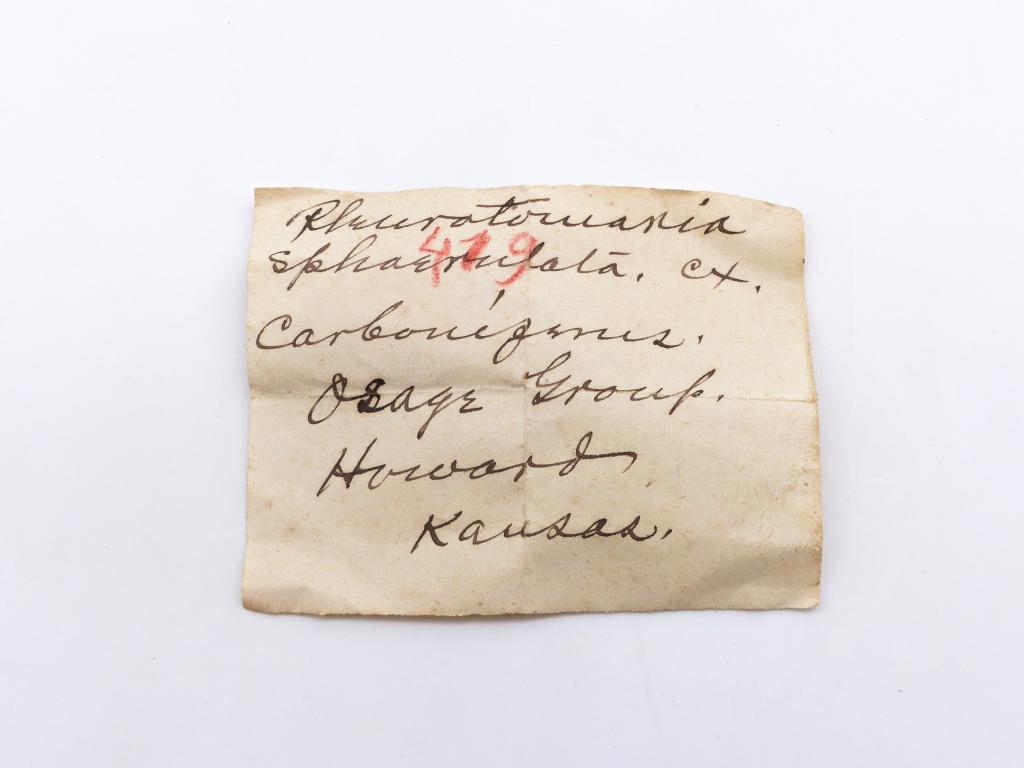 Pleurotomaria
479
sphaerulata. Cx.
Carboniferus.
Osage Group.
Howard
Kansas.